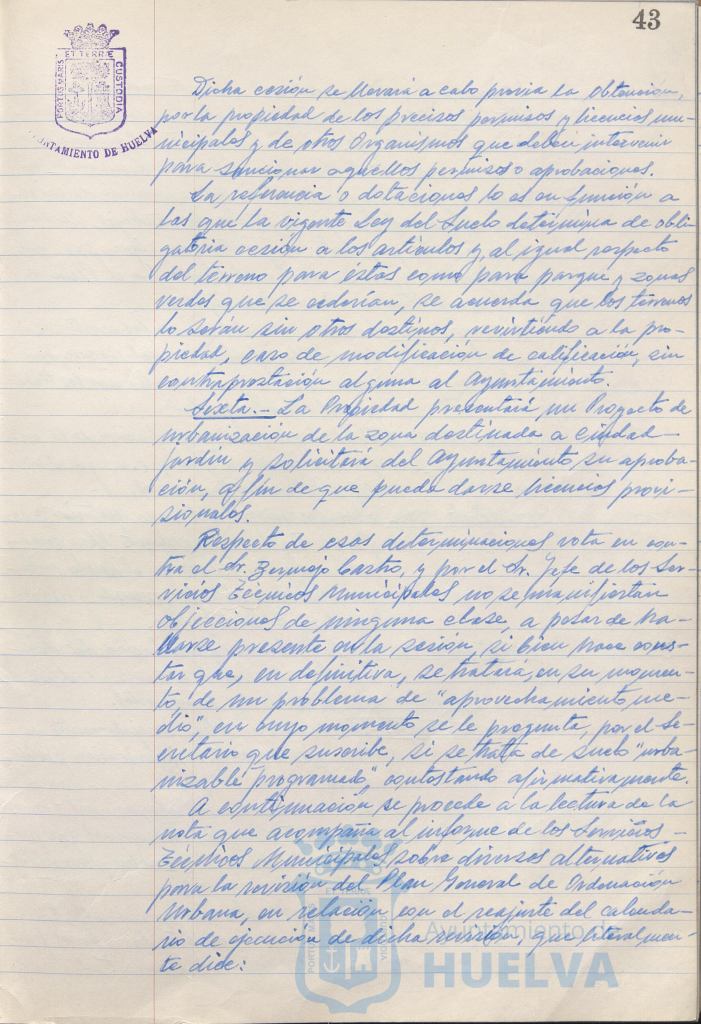 43
PORTUS MARIS ET TERRE CUSTODIA
AYUNTAMIENTO DE HUELVA
Dicha cesión se llevará a cabo previa la obtención,
por la propiedad de los precisos permisos y licencias mu-
nicipales y de otros Organismos que deben intervenir
para sancionar aquellos permisos o aprobaciones.
La referencia o dotaciones lo es en función a
las que la vigente Ley del Suelo determina de obli-
gatoria cesión a los artículos y, al igual respecto
del terreno para éstas como para parque y zonas
verdes que se cederían, se acuerda que los terrenos
lo serán sin otros destinos, revirtiendo a la pro-
piedad, caso de modificación de calificación, sin
contraprestación alguna al Ayuntamiento.
Sexta.- La Propiedad presentará un Proyecto de
urbanización de la zona destinada a ciudad-
jardín y solicitará del Ayuntamiento su aproba-
ción, a fin de que pueda darse licencias provi-
sionales.
Respecto de esas determinaciones vota en con-
tra el Sr. Bermejo Castro, y por el Sr. Jefe de los Ser-
vicios Técnicos Municipales no se manifiestan
objeciones de ninguna clase, a pesar de ha-
llarse presente en la sesión, si bien hace cons-
tar que, en definitiva, se tratará, en su momen-
to, de un problema de "aprovechamiento me-
dio", en cuyo momento se le pregunta, por el Se-
cretario que suscribe, si se trata de suelo "urba-
nizable programado", contestando afirmativamente.
A continuación se procede a la lectura de la
nota que acompaña al informe de los Servicios
Técnicos Municipales sobre diversas alternativas
para la revisión del Plan General de Ordenación
Urbana, en relación con el reajuste del calenda-
rio de ejecución de dicha revisión, que literalmen-
te dice:
Ayuntamiento de
HUELVA